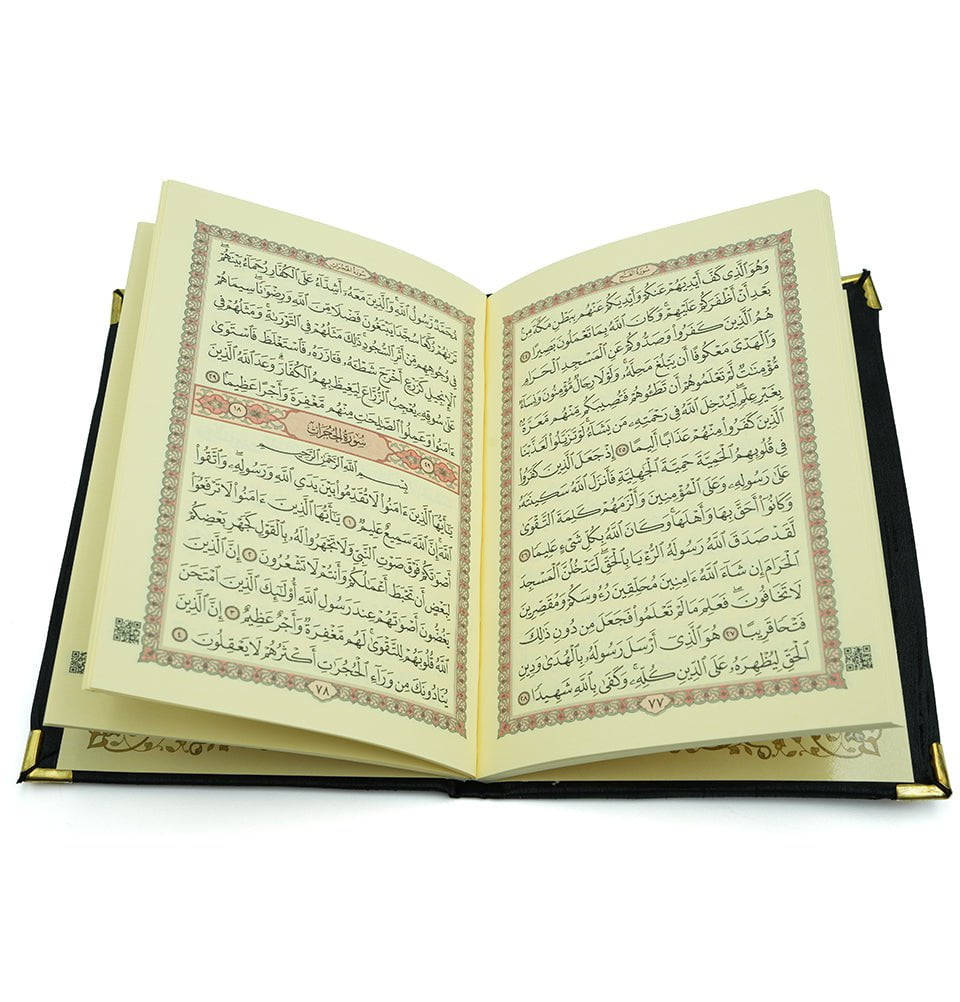 سُورَةُ الفَتْحِ
وَهُوَ ٱلَّذِى كَفَّ أَيْدِيَهُمْ عَنكُمْ وَأَيْدِيَكُمْ عَنْهُم بِبَطْنِ مَكَّةَ مِنۢ
بَعْدِ أَنْ أَظْفَرَكُمْ عَلَيْهِمْ وَكَانَ ٱللَّهُ بِمَا تَعْمَلُونَ بَصِيرًا ٢٤
هُمُ ٱلَّذِينَ كَفَرُوا۟ وَصَدُّوكُمْ عَنِ ٱلْمَسْجِدِ ٱلْحَرَامِ
وَٱلْهَدْىَ مَعْكُوفًا أَن يَبْلُغَ مَحِلَّهُۥ وَلَوْلَا رِجَالٌ مُّؤْمِنُونَ وَنِسَآءٌ
مُّؤْمِنَٰتٌ لَّمْ تَعْلَمُوهُمْ أَن تَطَـُٔوهُمْ فَتُصِيبَكُم مِّنْهُم مَّعَرَّةٌۢ
بِغَيْرِ عِلْمٍ لِّيُدْخِلَ ٱللَّهُ فِى رَحْمَتِهِۦ مَن يَشَآءُ لَوْ تَزَيَّلُوا۟ لَعَذَّبْنَا
ٱلَّذِينَ كَفَرُوا۟ مِنْهُمْ عَذَابًا أَلِيمًا ٢٥ إِذْ جَعَلَ ٱلَّذِينَ كَفَرُوا۟
فِى قُلُوبِهِمُ ٱلْحَمِيَّةَ حَمِيَّةَ ٱلْجَٰهِلِيَّةِ فَأَنزَلَ ٱللَّهُ سَكِينَتَهُۥ
عَلَىٰ رَسُولِهِۦ وَعَلَى ٱلْمُؤْمِنِينَ وَأَلْزَمَهُمْ كَلِمَةَ ٱلتَّقْوَىٰ
وَكَانُوٓا۟ أَحَقَّ بِهَا وَأَهْلَهَا وَكَانَ ٱللَّهُ بِكُلِّ شَىْءٍ عَلِيمًا ٢٦
لَّقَدْ صَدَقَ ٱللَّهُ رَسُولَهُ ٱلرُّءْيَا بِٱلْحَقِّ لَتَدْخُلُنَّ ٱلْمَسْجِدَ
ٱلْحَرَامَ إِن شَآءَ ٱللَّهُ ءَامِنِينَ مُحَلِّقِينَ رُءُوسَكُمْ وَمُقَصِّرِينَ
لَا تَخَافُونَ فَعَلِمَ مَا لَمْ تَعْلَمُوا۟ فَجَعَلَ مِن دُونِ ذَٰلِكَ
فَتْحًا قَرِيبًا ٢٧ هُوَ ٱلَّذِىٓ أَرْسَلَ رَسُولَهُۥ بِٱلْهُدَىٰ وَدِينِ
ٱلْحَقِّ لِيُظْهِرَهُۥ عَلَى ٱلدِّينِ كُلِّهِۦ وَكَفَىٰ بِٱللَّهِ شَهِيدًا ٢٨
٧٧
سُورَةُ الحُجُرَاتِ
مُّحَمَّدٌ رَّسُولُ ٱللَّهِ وَٱلَّذِينَ مَعَهُۥٓ أَشِدَّآءُ عَلَى ٱلْكُفَّارِ رُحَمَآءُ بَيْنَهُمْ
تَرَىٰهُمْ رُكَّعًا سُجَّدًا يَبْتَغُونَ فَضْلًا مِّنَ ٱللَّهِ وَرِضْوَٰنًا سِيمَاهُمْ
فِى وُجُوهِهِم مِّنْ أَثَرِ ٱلسُّجُودِ ذَٰلِكَ مَثَلُهُمْ فِى ٱلتَّوْرَىٰةِ وَمَثَلُهُمْ فِى
ٱلْإِنجِيلِ كَزَرْعٍ أَخْرَجَ شَطْـَٔهُۥ فَـَٔازَرَهُۥ فَٱسْتَغْلَظَ فَٱسْتَوَىٰ
عَلَىٰ سُوقِهِۦ يُعْجِبُ ٱلزُّرَّاعَ لِيَغِيظَ بِهِمُ ٱلْكُفَّارَ وَعَدَ ٱللَّهُ ٱلَّذِينَ
ءَامَنُوا۟ وَعَمِلُوا۟ ٱلصَّٰلِحَٰتِ مِنْهُم مَّغْفِرَةً وَأَجْرًا عَظِيمًۢا ٢٩
٤٩ سُورَةُ الحُجُرَاتِ ١٨
بِسْمِ ٱللَّهِ ٱلرَّحْمَٰنِ ٱلرَّحِيمِ
يَٰٓأَيُّهَا ٱلَّذِينَ ءَامَنُوا۟ لَا تُقَدِّمُوا۟ بَيْنَ يَدَىِ ٱللَّهِ وَرَسُولِهِۦ وَٱتَّقُوا۟
ٱللَّهَ إِنَّ ٱللَّهَ سَمِيعٌ عَلِيمٌ ١ يَٰٓأَيُّهَا ٱلَّذِينَ ءَامَنُوا۟ لَا تَرْفَعُوٓا۟
أَصْوَٰتَكُمْ فَوْقَ صَوْتِ ٱلنَّبِىِّ وَلَا تَجْهَرُوا۟ لَهُۥ بِٱلْقَوْلِ كَجَهْرِ بَعْضِكُمْ
لِبَعْضٍ أَن تَحْبَطَ أَعْمَٰلُكُمْ وَأَنتُمْ لَا تَشْعُرُونَ ٢ إِنَّ ٱلَّذِينَ
يَغُضُّونَ أَصْوَٰتَهُمْ عِندَ رَسُولِ ٱللَّهِ أُو۟لَٰٓئِكَ ٱلَّذِينَ ٱمْتَحَنَ
ٱللَّهُ قُلُوبَهُمْ لِلتَّقْوَىٰ لَهُم مَّغْفِرَةٌ وَأَجْرٌ عَظِيمٌ ٣ إِنَّ ٱلَّذِينَ
يُنَادُونَكَ مِن وَرَآءِ ٱلْحُجُرَٰتِ أَكْثَرُهُمْ لَا يَعْقِلُونَ ٤
٧٨